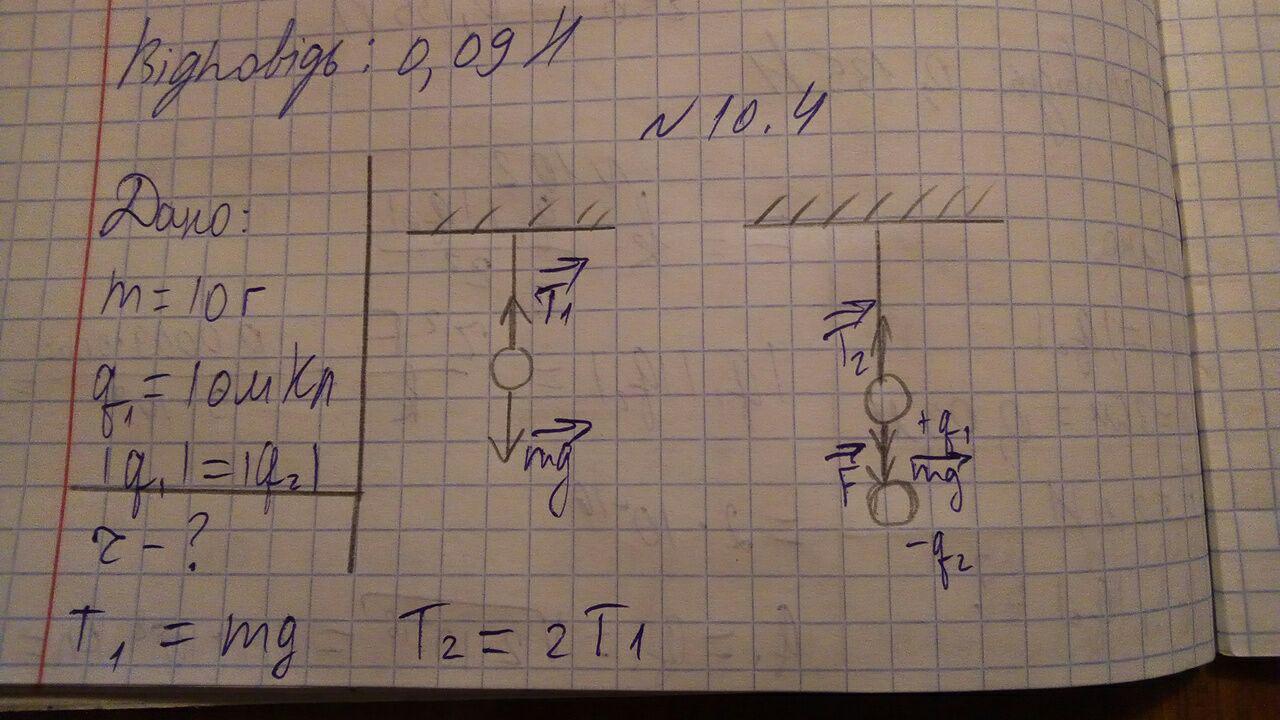 Відповідь: 0,09 Н
№ 10.4
Дано:
m = 10 г
q₁ = 10 мкКл
|q₁| = |q₂|
r - ?
T₁
mg
T₂
+q₁
F
mg
-q₂
T₁ = mg T₂ = 2T₁